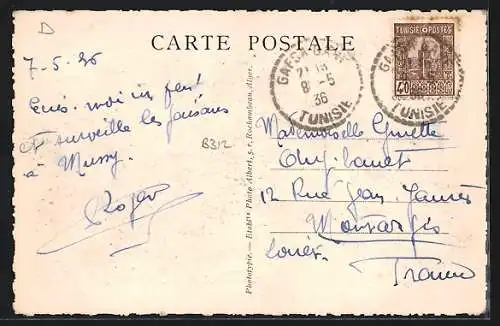 D
CARTE POSTALE
7-5-36
Ecris-moi un peu!
et surveille les faisans
à Mussy.
Roger
B312
Phototypie. — Etabl^ts Photo Albert, 5, r. Rochambeau, Alger.
GAFSA
21
8-5
36
TUNISIE
GAFSA
TUNISIE
TUNISIE POSTES
40
Mademoiselle Ginette
12 Rue Jean Jaurès
Montargis
Loiret
France